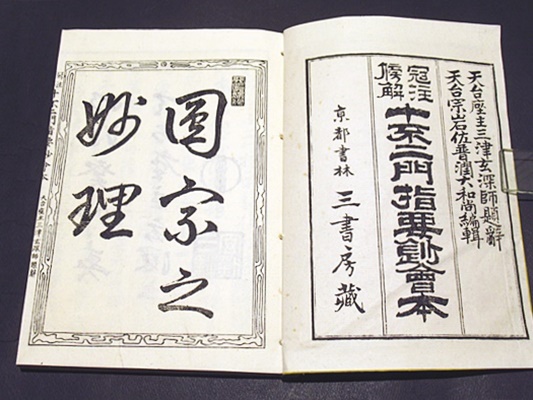 天台座主三津玄深師題辭
天台宗山石佐普潤大和尚編輯
冠注
傍解
十不二門指要鈔會本
京都書林 三書房藏
圓宗之
妙理